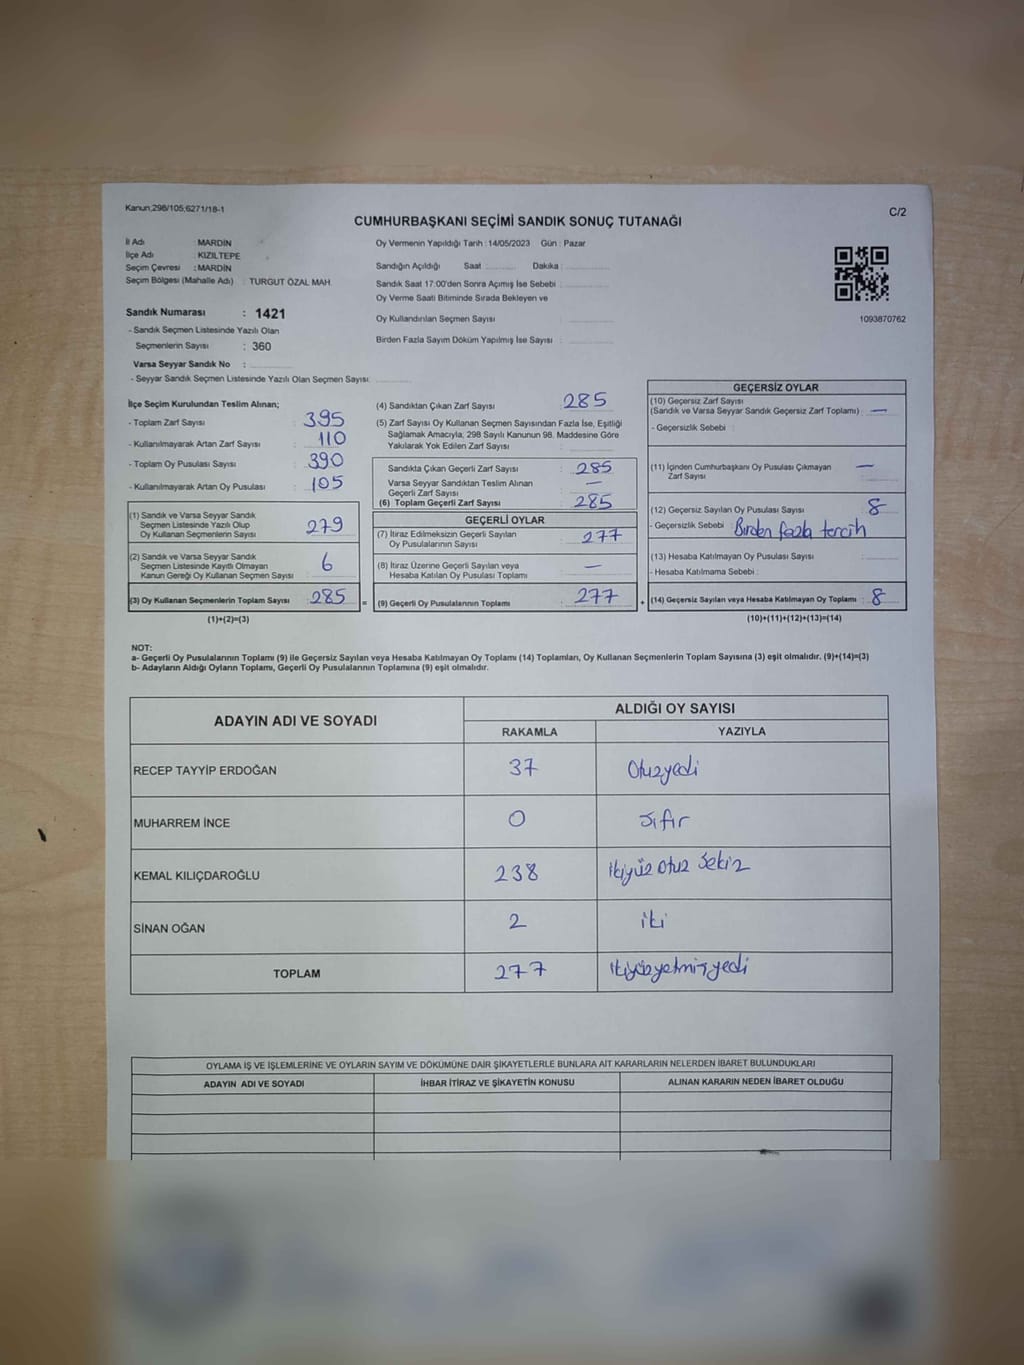 Kanun;298/105;6271/18-1
C/2
CUMHURBAŞKANI SEÇİMİ SANDIK SONUÇ TUTANAĞI
İl Adı : MARDİN
İlçe Adı : KIZILTEPE
Seçim Çevresi : MARDİN
Seçim Bölgesi (Mahalle Adı) : TURGUT ÖZAL MAH.
Sandık Numarası : 1421
- Sandık Seçmen Listesinde Yazılı Olan
Seçmenlerin Sayısı : 360
Varsa Seyyar Sandık No :
- Seyyar Sandık Seçmen Listesinde Yazılı Olan Seçmen Sayısı:
Oy Vermenin Yapıldığı Tarih : 14/05/2023 Gün : Pazar
Sandığın Açıldığı Saat Dakika :
Sandık Saat 17:00'den Sonra Açımış İse Sebebi :
Oy Verme Saati Bitiminde Sırada Bekleyen ve
Oy Kullandırılan Seçmen Sayısı :
Birden Fazla Sayım Döküm Yapılmış İse Sayısı :
1093870762
İlçe Seçim Kurulundan Teslim Alınan;
- Toplam Zarf Sayısı : 395
- Kullanılmayarak Artan Zarf Sayısı : 110
- Toplam Oy Pusulası Sayısı : 390
- Kullanılmayarak Artan Oy Pusulası : 105
(1) Sandık ve Varsa Seyyar Sandık
Seçmen Listesinde Yazılı Olup
Oy Kullanan Seçmenlerin Sayısı : 279
(2) Sandık ve Varsa Seyyar Sandık
Seçmen Listesinde Kayıtlı Olmayan
Kanun Gereği Oy Kullanan Seçmen Sayısı : 6
(3) Oy Kullanan Seçmenlerin Toplam Sayısı : 285 =
(1)+(2)=(3)
(4) Sandıktan Çıkan Zarf Sayısı : 285
(5) Zarf Sayısı Oy Kullanan Seçmen Sayısından Fazla İse, Eşitliği
Sağlamak Amacıyla, 298 Sayılı Kanunun 98. Maddesine Göre
Yakılarak Yok Edilen Zarf Sayısı :
Sandıkta Çıkan Geçerli Zarf Sayısı : 285
Varsa Seyyar Sandıktan Teslim Alınan
Geçerli Zarf Sayısı : —
(6) Toplam Geçerli Zarf Sayısı : 285
GEÇERLİ OYLAR
(7) İtiraz Edilmeksizin Geçerli Sayılan
Oy Pusulalarının Sayısı : 277
(8) İtiraz Üzerine Geçerli Sayılan veya
Hesaba Katılan Oy Pusulası Toplamı : —
(9) Geçerli Oy Pusulalarının Toplamı : 277 +
GEÇERSİZ OYLAR
(10) Geçersiz Zarf Sayısı
(Sandık ve Varsa Seyyar Sandık Geçersiz Zarf Toplamı) : —
- Geçersizlik Sebebi :
(11) İçinden Cumhurbaşkanı Oy Pusulası Çıkmayan
Zarf Sayısı : —
(12) Geçersiz Sayılan Oy Pusulası Sayısı : 8
- Geçersizlik Sebebi : Birden fazla tercih
(13) Hesaba Katılmayan Oy Pusulası Sayısı :
- Hesaba Katılmama Sebebi :
(14) Geçersiz Sayılan veya Hesaba Katılmayan Oy Toplamı : 8
(10)+(11)+(12)+(13)=(14)
NOT:
a- Geçerli Oy Pusulalarının Toplamı (9) ile Geçersiz Sayılan veya Hesaba Katılmayan Oy Toplamı (14) Toplamları, Oy Kullanan Seçmenlerin Toplam Sayısına (3) eşit olmalıdır. (9)+(14)=(3)
b- Adayların Aldığı Oyların Toplamı, Geçerli Oy Pusulalarının Toplamına (9) eşit olmalıdır.
ADAYIN ADI VE SOYADI
ALDIĞI OY SAYISI
RAKAMLA YAZIYLA
RECEP TAYYİP ERDOĞAN 37 Otuzyedi
MUHARREM İNCE 0 Sıfır
KEMAL KILIÇDAROĞLU 238 ikiyüz otuz sekiz
SİNAN OĞAN 2 iki
TOPLAM 277 ikiyüzyetmişyedi
OYLAMA İŞ VE İŞLEMLERİNE VE OYLARIN SAYIM VE DÖKÜMÜNE DAİR ŞİKAYETLERLE BUNLARA AİT KARARLARIN NELERDEN İBARET BULUNDUKLARI
ADAYIN ADI VE SOYADI İHBAR İTİRAZ VE ŞİKAYETİN KONUSU ALINAN KARARIN NEDEN İBARET OLDUĞU